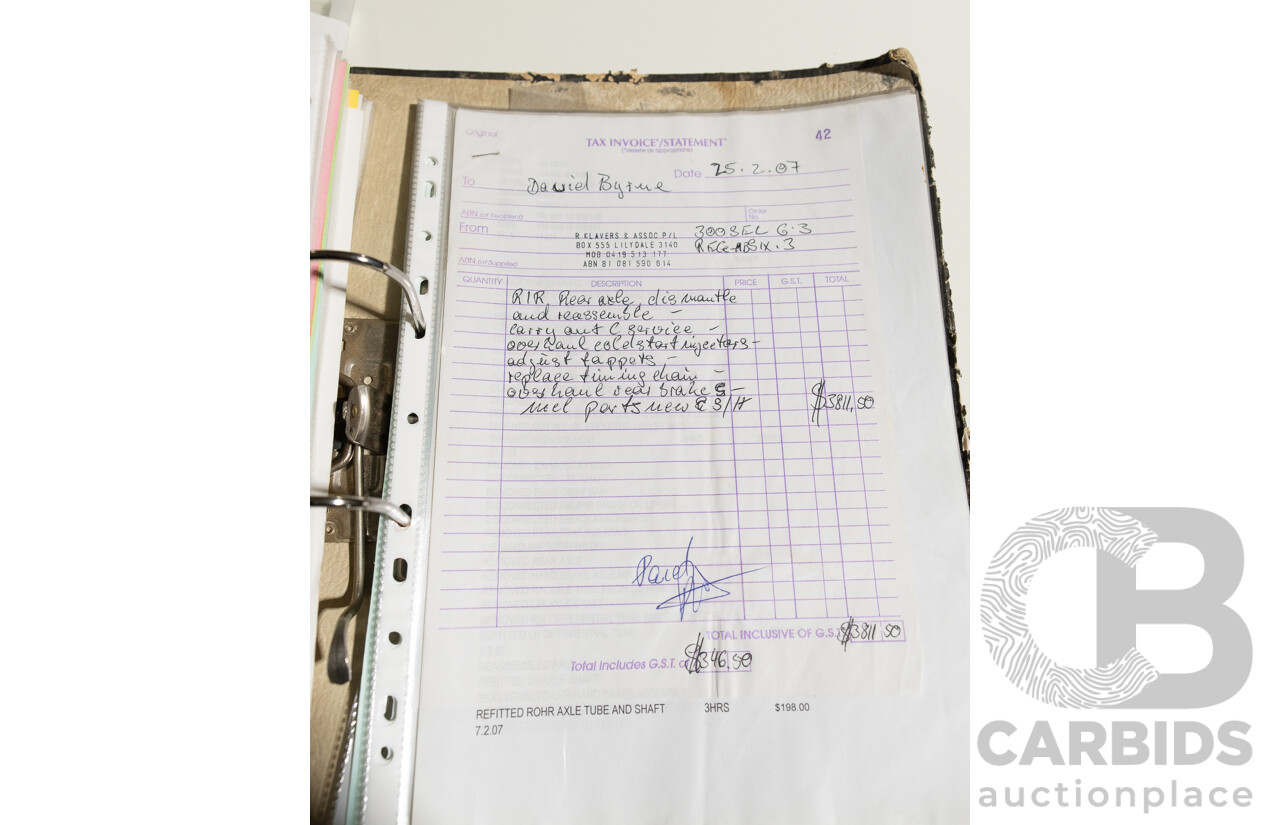 Original
TAX INVOICE*/STATEMENT*
(*delete as appropriate)
42
Date 25.2.07
To David Byrne
ABN (of Recipient)
Order No.
From
R KLAVERS & ASSOC P/L
BOX 555 LILYDALE 3140
MOB 0419 513 177
ABN 81 081 590 614
300SEL 6.3
ABN (of Supplier)
QUANTITY DESCRIPTION PRICE G.S.T. TOTAL
R/R Rear axle, dismantle
and reassemble -
carry out C service -
overhaul coldstart injectors -
adjust tappets, -
replace timing chain -
overhaul rear brakes -
incl parts new & S/H $3811.50
Paid
TOTAL INCLUSIVE OF G.S.T. $3811 50
Total Includes G.S.T. of $346.50
REFITTED ROHR AXLE TUBE AND SHAFT 3HRS $198.00
7.2.07
CB
CARBIDS
auctionplace